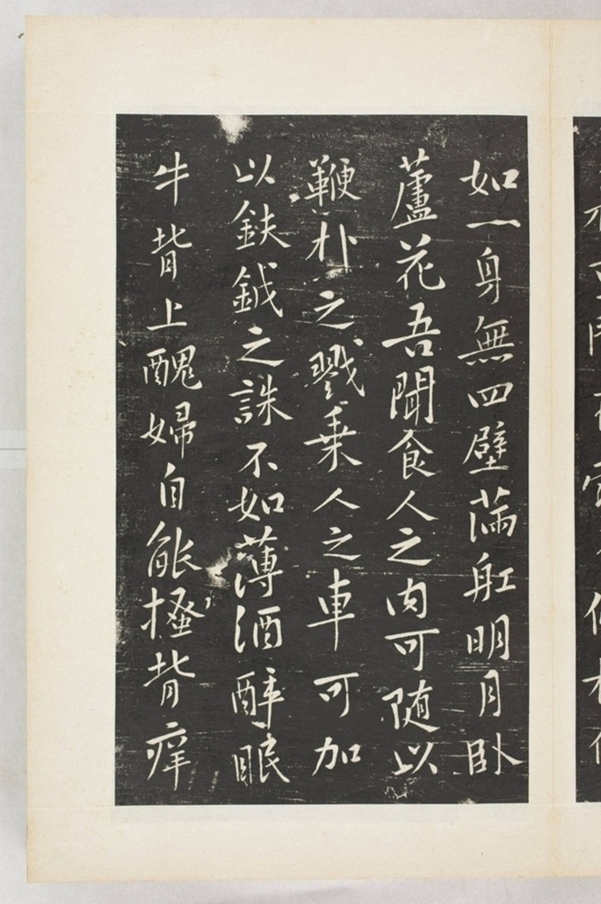 如一身無四壁滿舡明月卧
蘆花吾聞食人之肉可随以
鞭朴之戮乗人之車可加
以鈇鉞之誅不如薄酒醉眠
牛背上醜婦自能搔背痒